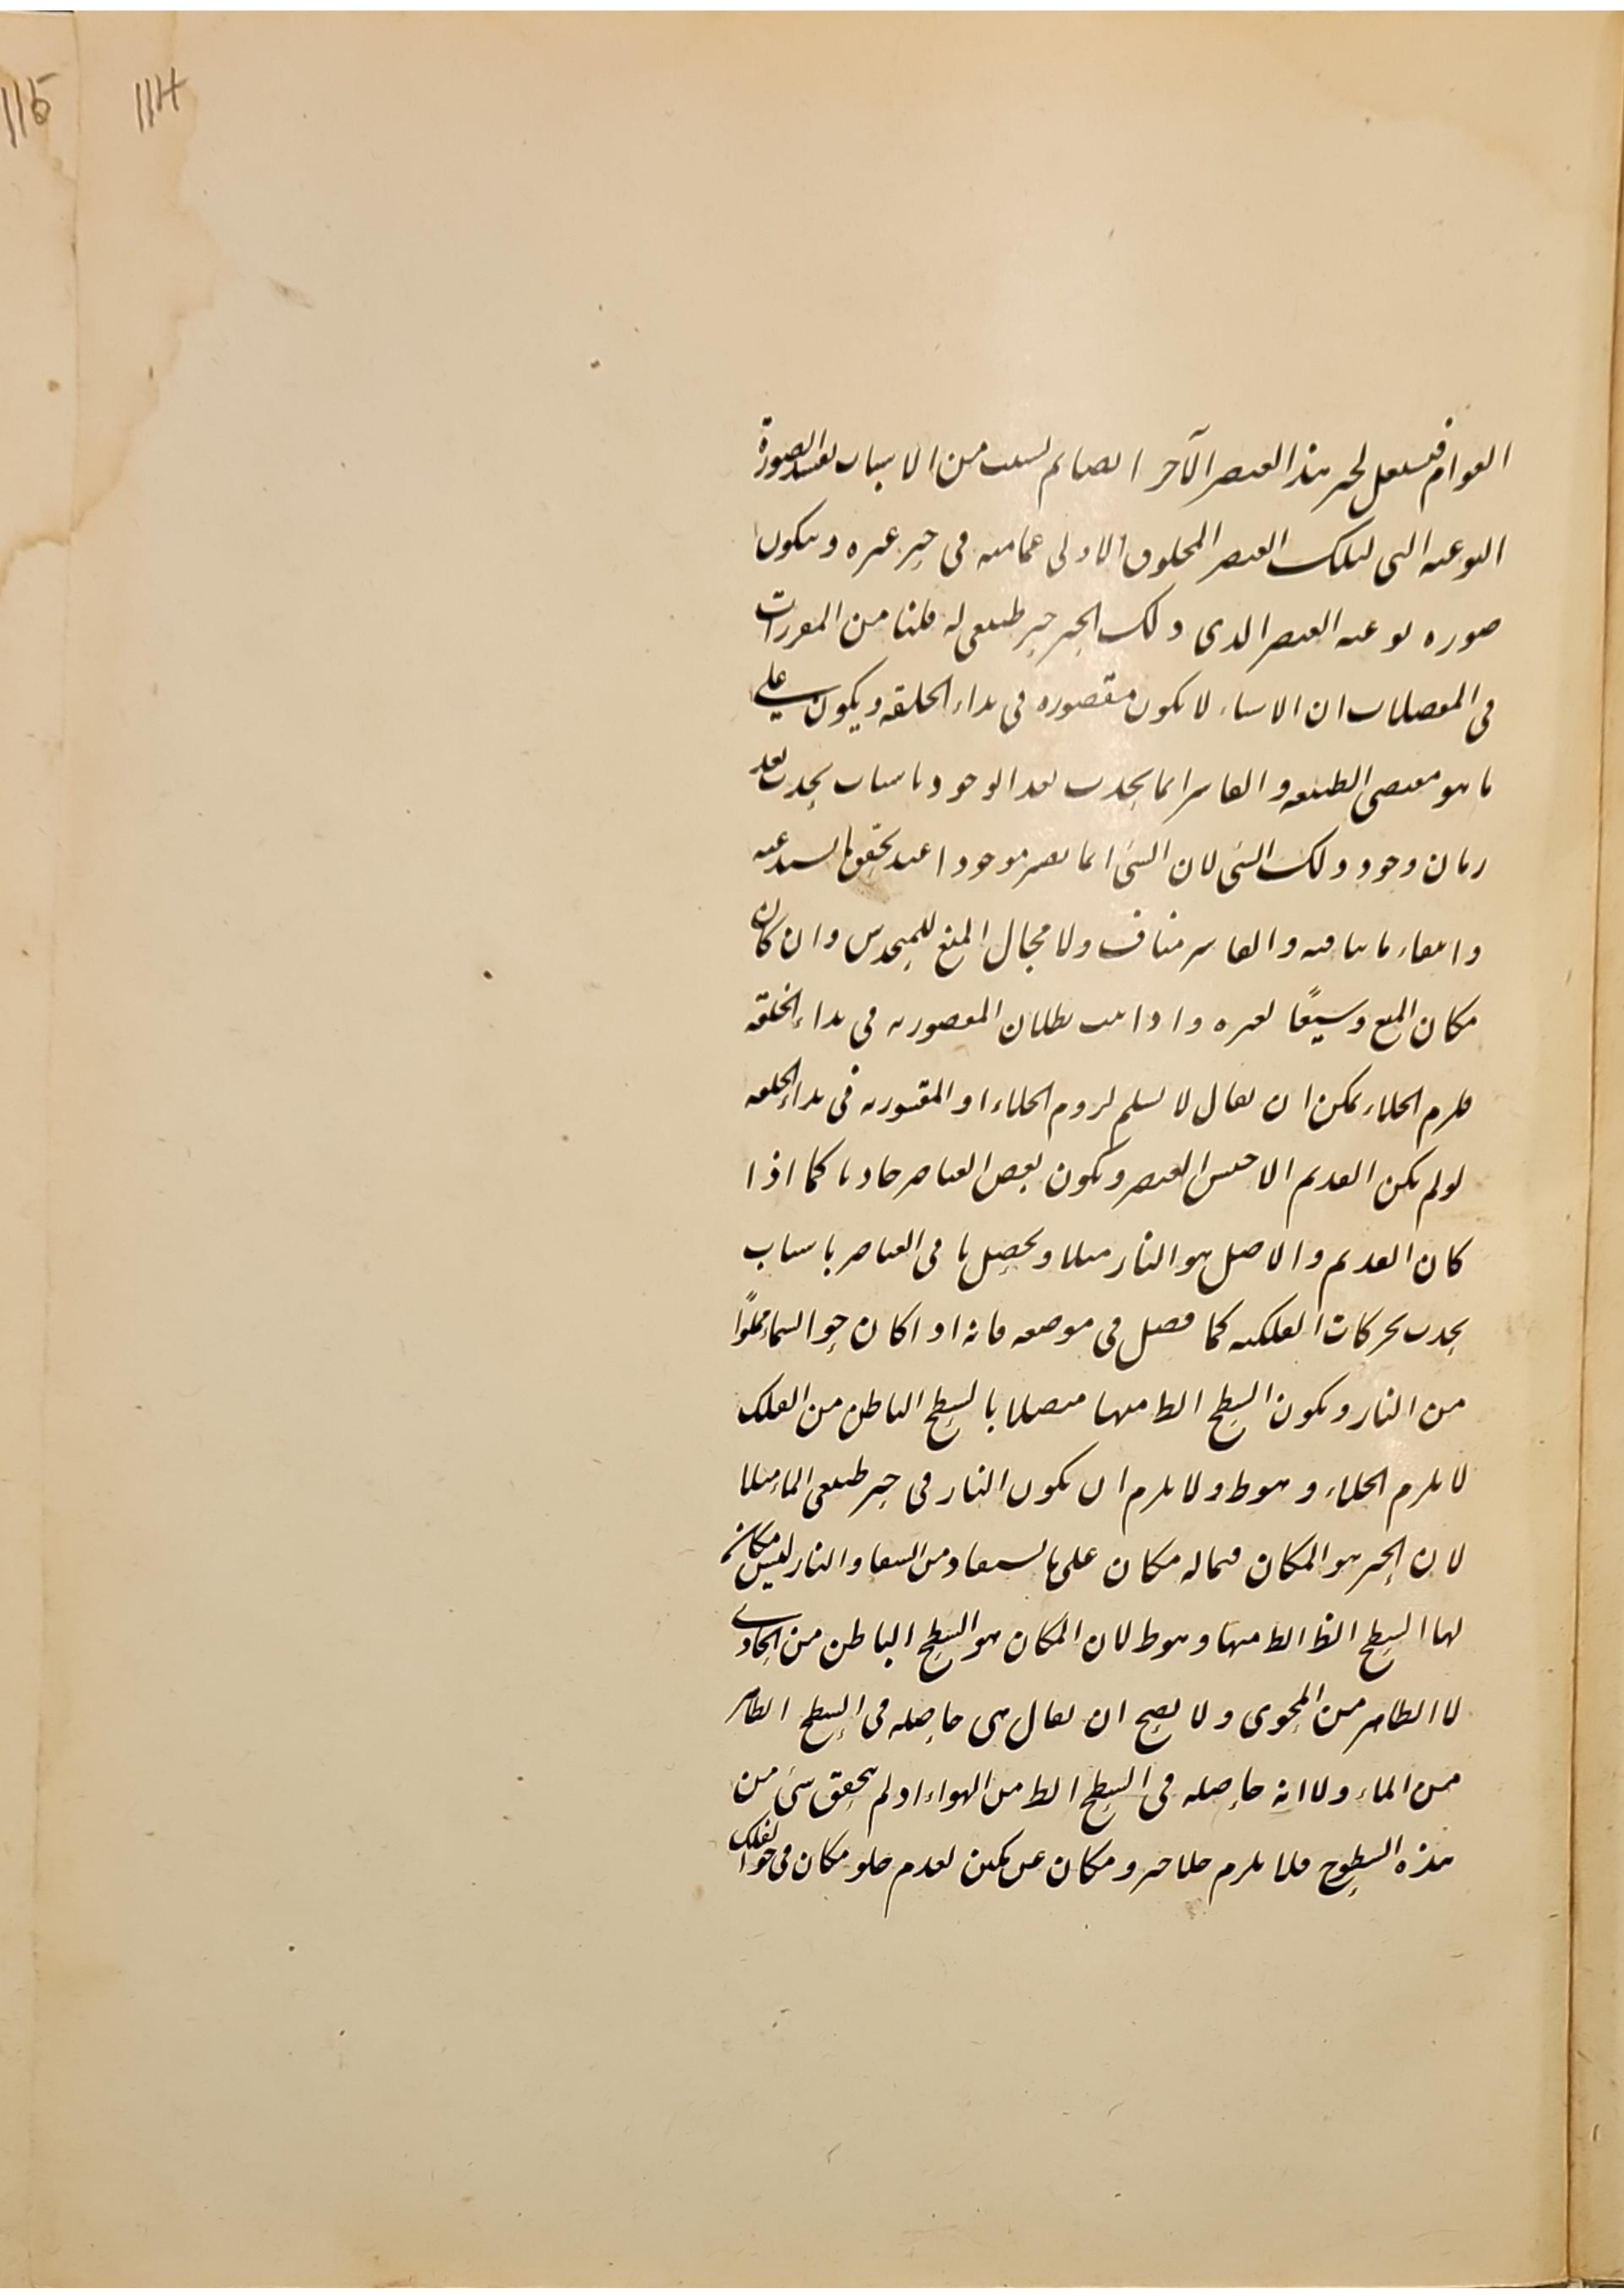 115 114
القوام فيستعمل لحيز هذا العنصر الآخر ايضا ثم لسبب من الاسباب يفسد الصورة
النوعية التي لتلك العنصر المخلوق الاولى عما فيه في حيز غيره ويتكون
صورة نوعية العنصر الذي ذلك الحيز حيز طبيعي له قلنا من المقررات
في المفصلات ان الاشياء لا يكون مقصورة في بداء الخلقة ويكون على
ما هو مقتضى الطبيعة والقاسر انما يحدث بعد الوجود باسباب يحدث بعد
زمان وجود ذلك الشئ لان الشئ انما يصير موجودا عند تحقق ما يستدعيه
وانتفاء ما ينافيه والقاسر مناف ولا مجال المنع للمتحدس وان كان
مكان المنع وسيعًا لغيره واذا ثبت بطلان المقصورية في بداء الخلقة
فلزم الخلاء يمكن ان يقال لا نسلم لزوم الخلاء او المقسورية في بداء الخلقة
لو لم يكن القديم الا جنس العنصر ويكون بعض العناصر حادثا كما اذا
كان القديم والاصل هو النار مثلا ويحصل باقي العناصر باسباب
يحدث بحركات الفلكية كما فصل في موضعه فانه اذا كان جو السماء مملوًا
من النار ويكون السطح الظ منها متصلا بالسطح الباطن من الفلك
لا يلزم الخلاء وهو ظ ولا يلزم ان يكون النار في حيز طبيعي الماء مثلا
لان الحيز هو المكان فما له مكان على ما يستفاد من الشفا والنار ليس مكانه
لها السطح الظ الظ منها وهو ظ لان المكان هو السطح الباطن من الحاوي
لا الظاهر من المحوى ولا يصح ان يقال هي حاصله في السطح الظاهر
من الماء ولا انه حاصله في السطح الظ من الهواء اذ لم يتحقق شئ من
هذه السطوح فلا يلزم خلاء حيز ومكان عن متمكن لعدم خلو مكان في جو الفلك